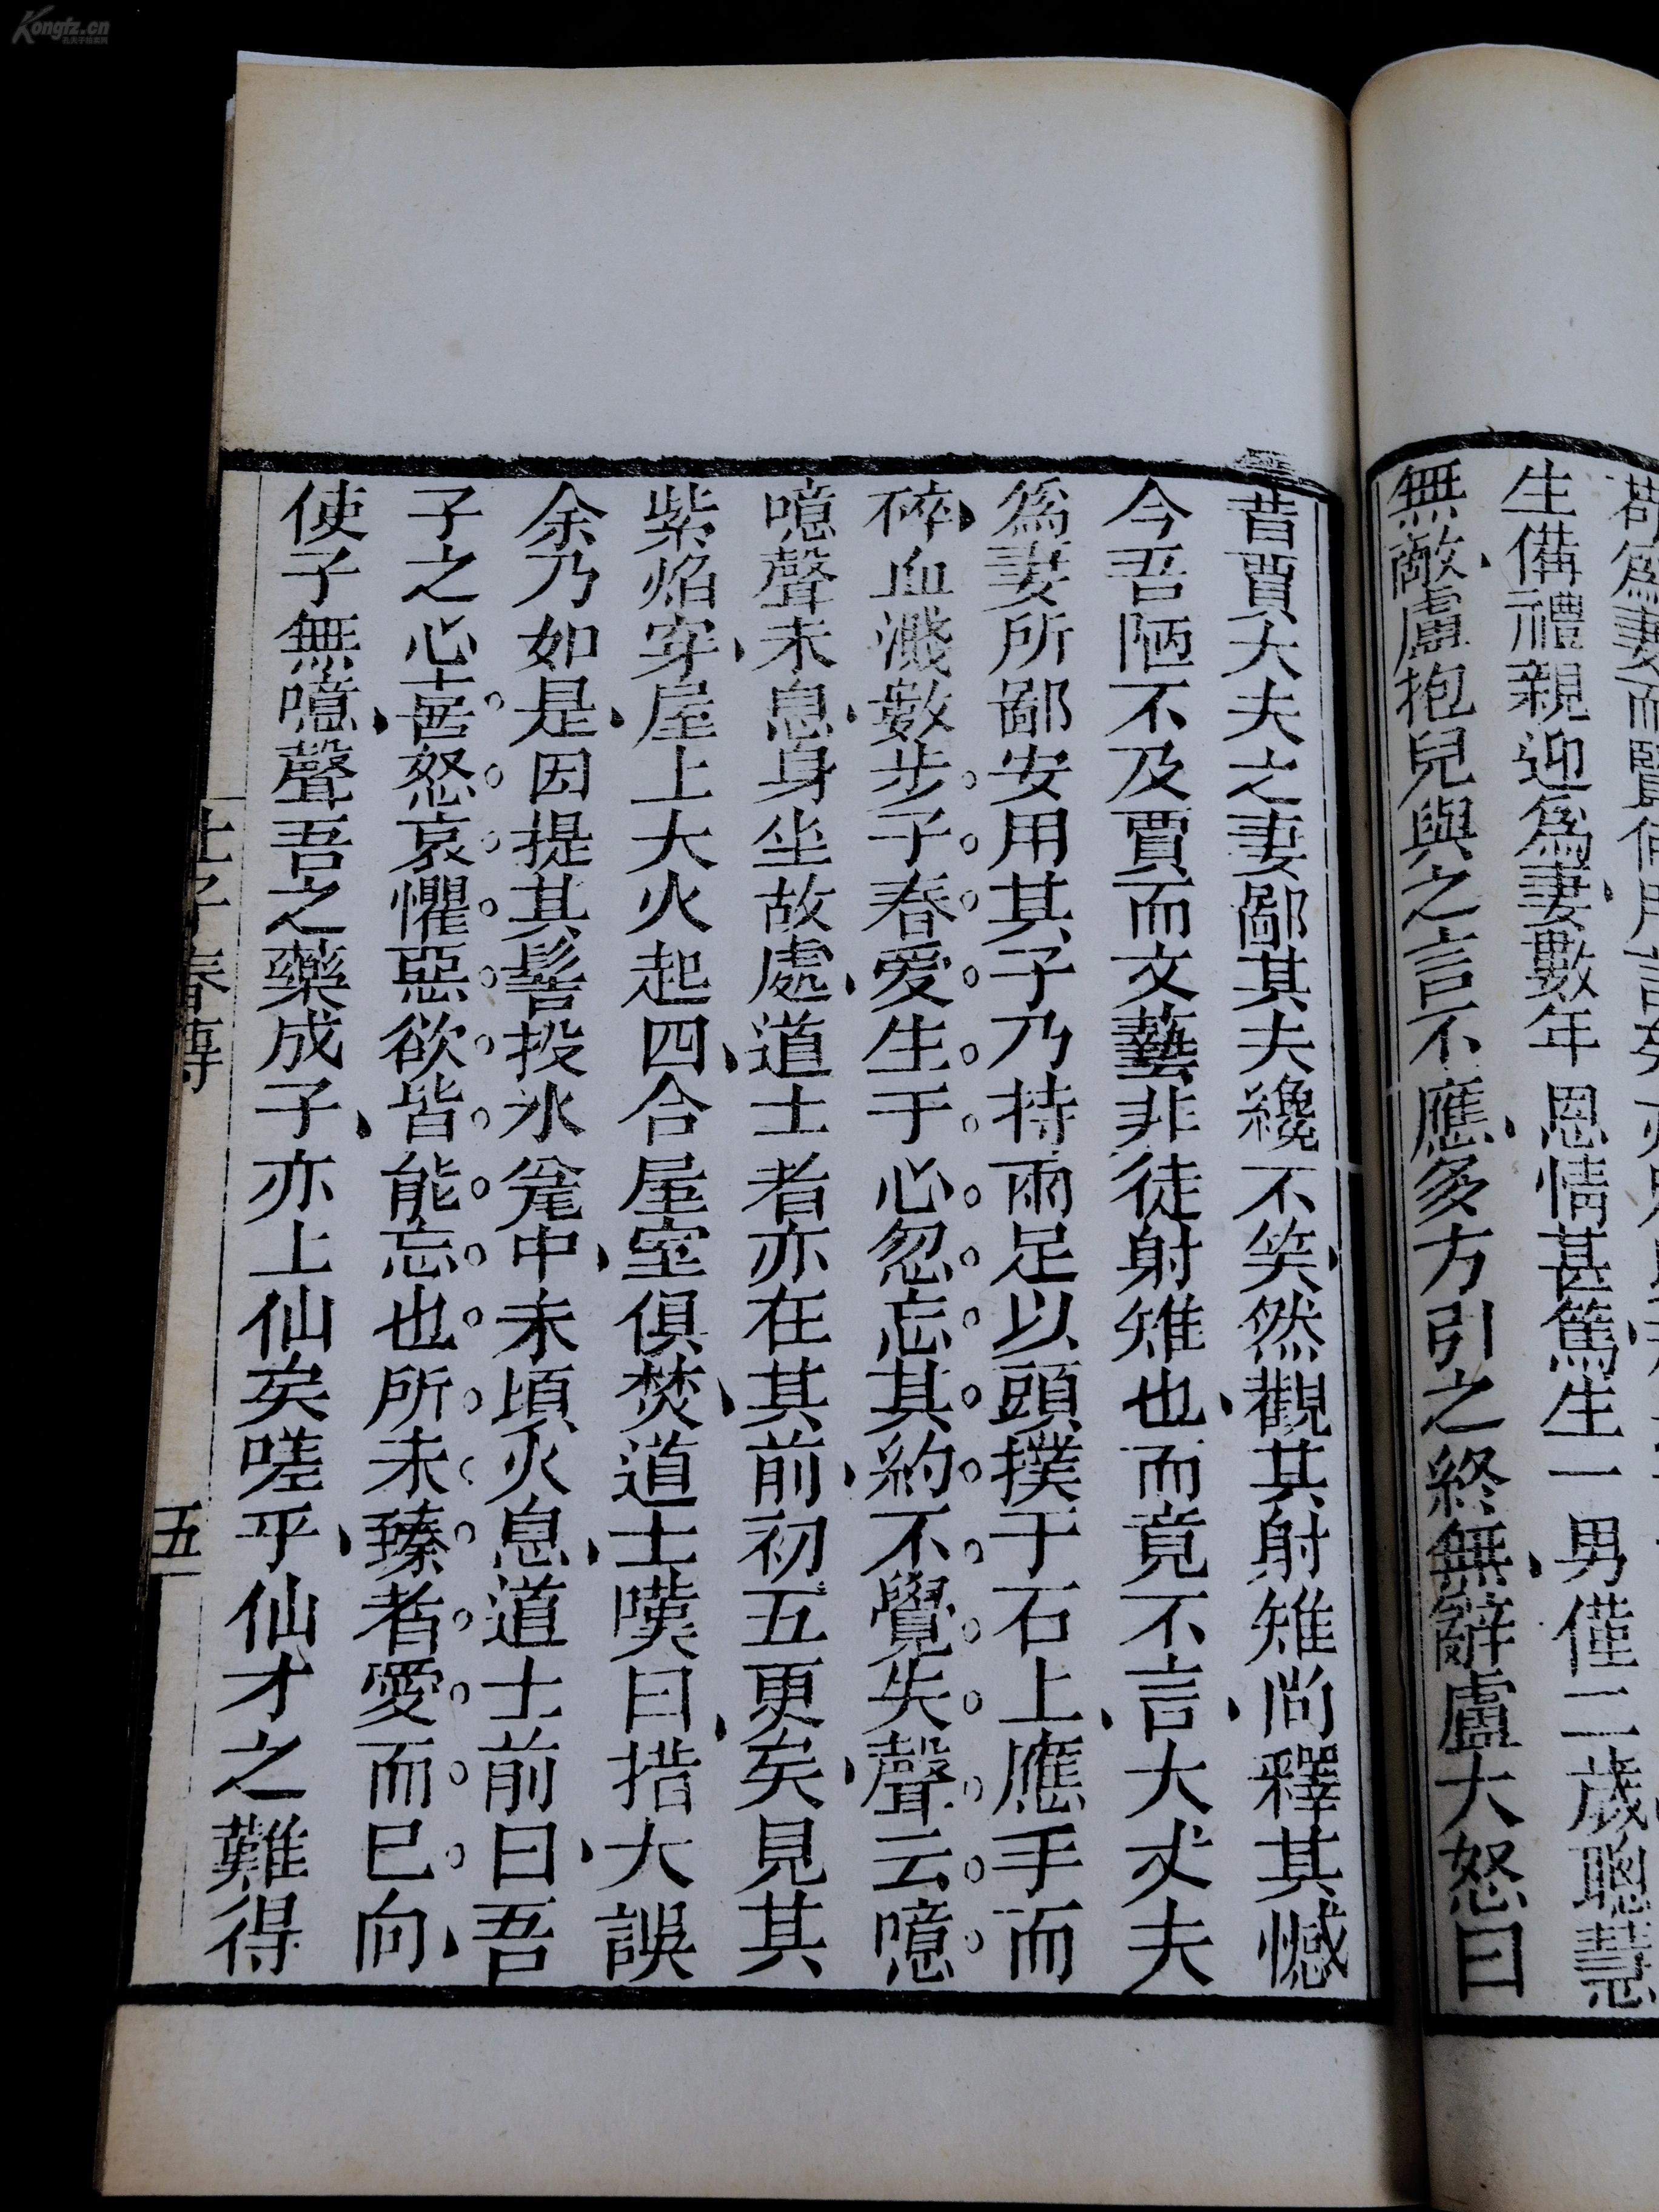 爲妻而賢何用言矣亦
生備禮親迎爲妻數年恩情甚篤生一男僅二歲聰慧
無敵盧抱兒與之言不應多方引之終無辭盧大怒曰
昔賈大夫之妻鄙其夫纔不笑然觀其射雉尚釋其憾
今吾陋不及賈而文藝非徒射雉也而竟不言大丈夫
爲妻所鄙安用其子乃持兩足以頭撲于石上應手而
碎血濺數步子春愛生于心忽忘其約不覺失聲云噫
噫聲未息身坐故處道士者亦在其前初五更矣見其
紫焰穿屋上大火起四合屋室俱焚道士嘆曰措大誤
余乃如是因提其髻投水瓮中未頃火息道士前曰吾
子之心喜怒哀懼惡欲皆能忘也所未臻者愛而已向
使子無噫聲吾之藥成子亦上仙矣嗟乎仙才之難得
杜子春傳
五
Kongfz.cn